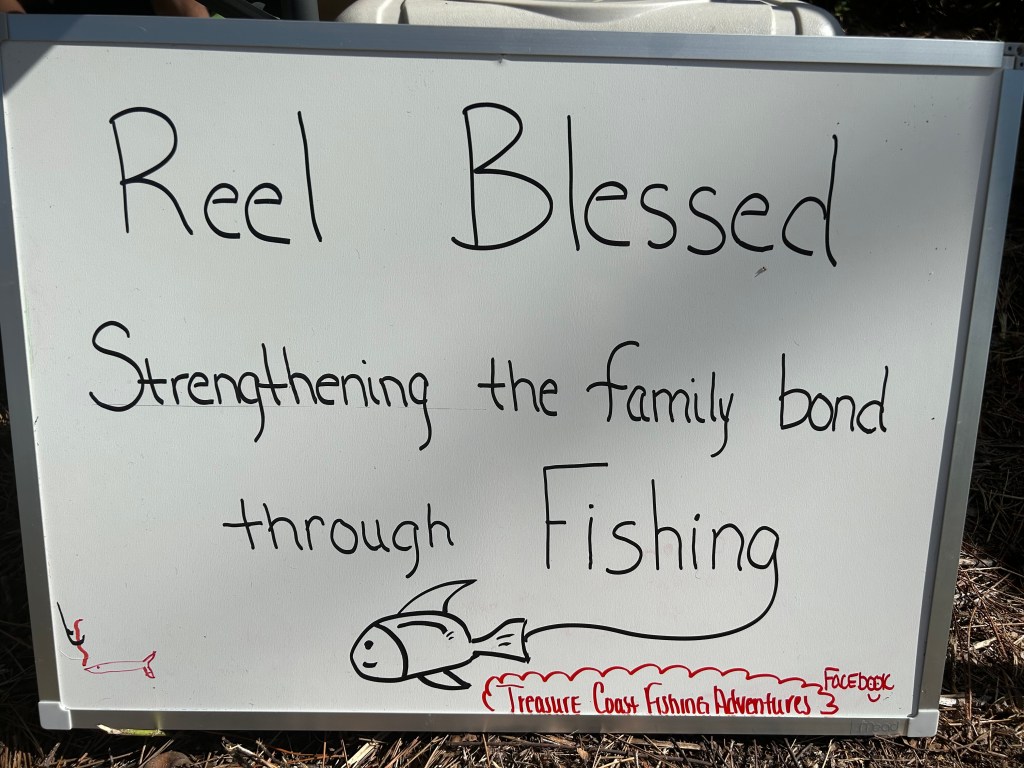 Reel Blessed
Strengthening the family bond
through Fishing
Facebook
Treasure Coast Fishing Adventures
mead